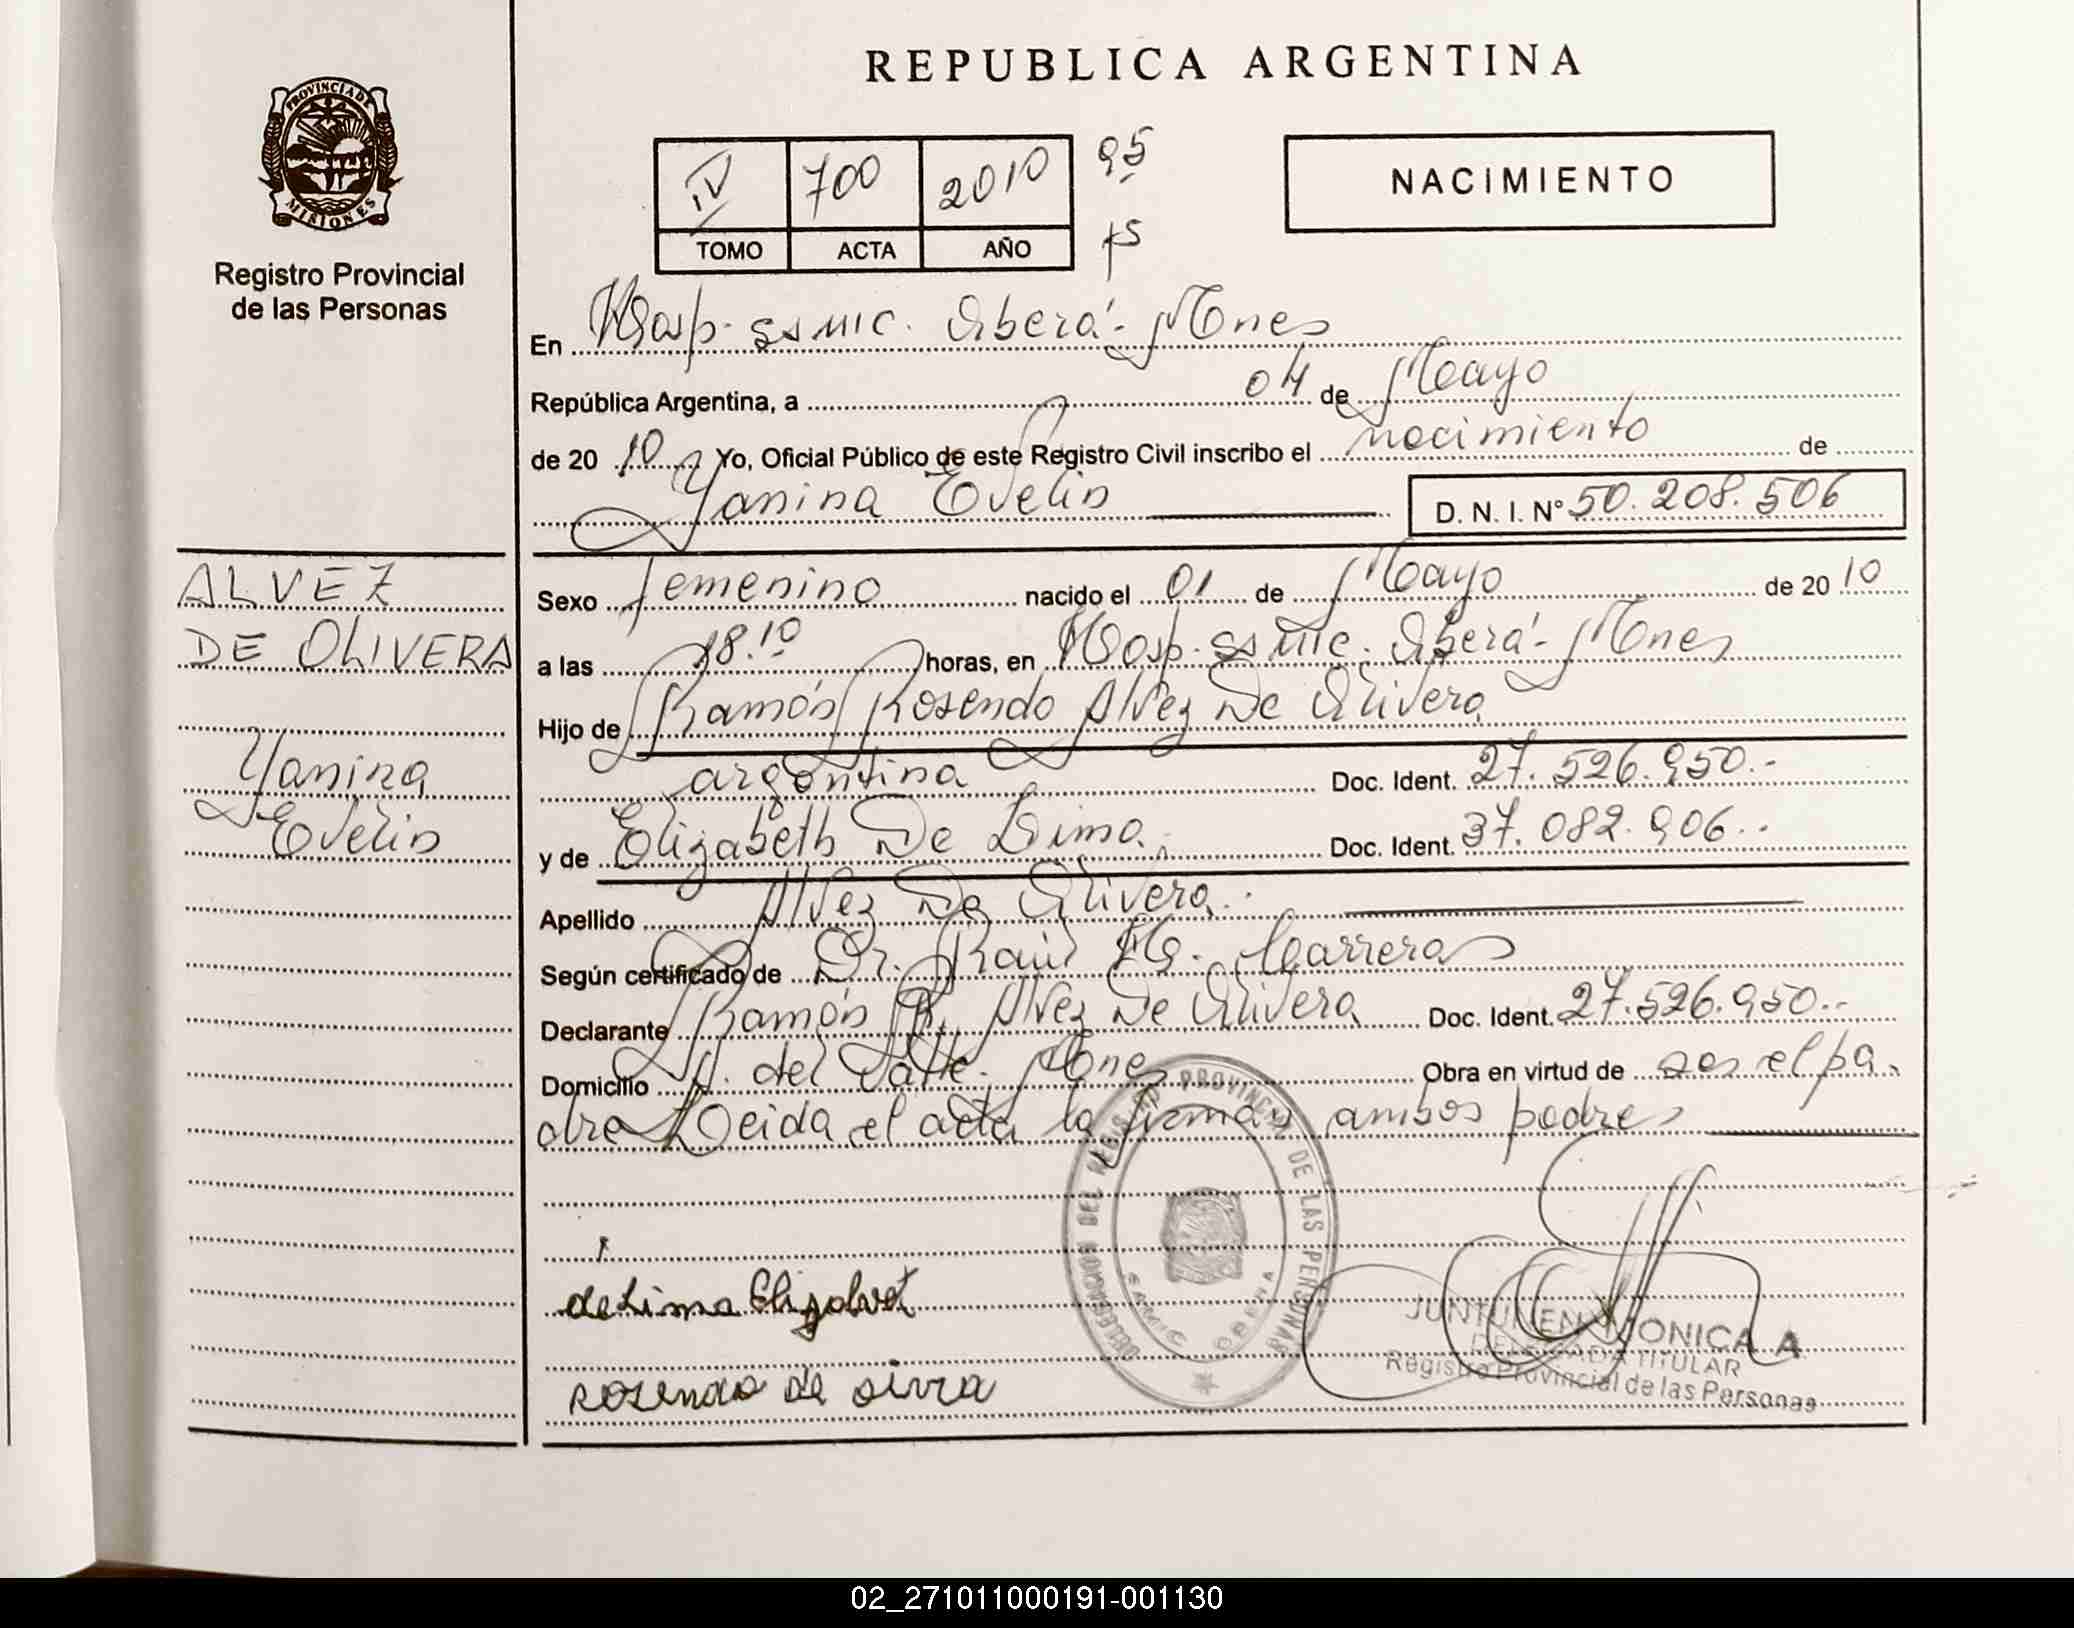 REPUBLICA ARGENTINA
PROVINCIA DE
MISIONES
Registro Provincial
de las Personas
IV 700 2010 95
TOMO ACTA AÑO
NACIMIENTO
En Hosp. SAMIC. Oberá - Mnes
República Argentina, a 04 de Mayo
de 20 10 Yo, Oficial Público de este Registro Civil inscribo el nacimiento de
Yanina Evelin D. N. I. Nº 50.208.506
ALVEZ
DE OLIVERA
Yanina
Evelin
Sexo femenino nacido el 01 de Mayo de 20 10
a las 18.10 horas, en Hosp. SAMIC. Oberá - Mnes
Hijo de Ramón Rosendo Alvez De Olivera
argentina Doc. Ident. 27.526.950.-
y de Elizabeth De Lima. Doc. Ident. 37.082.906.-
Apellido Alvez De Olivera.
Según certificado de Dr. Raúl H. Carreras
Declarante Ramón R. Alvez De Olivera Doc. Ident. 27.526.950.-
Domicilio A. del Valle. Mnes Obra en virtud de ser el pa
dre Leida el acta la firman ambos padres
de Lima Elizabet
rosendo de
DELEGACION DEL REGISTRO PROVINCIAL DE LAS PERSONAS
SAMIC OBERA
JUNTUNEN MONICA A
DELEGADA TITULAR
Registro Provincial de las Personas
02_271011000191-001130